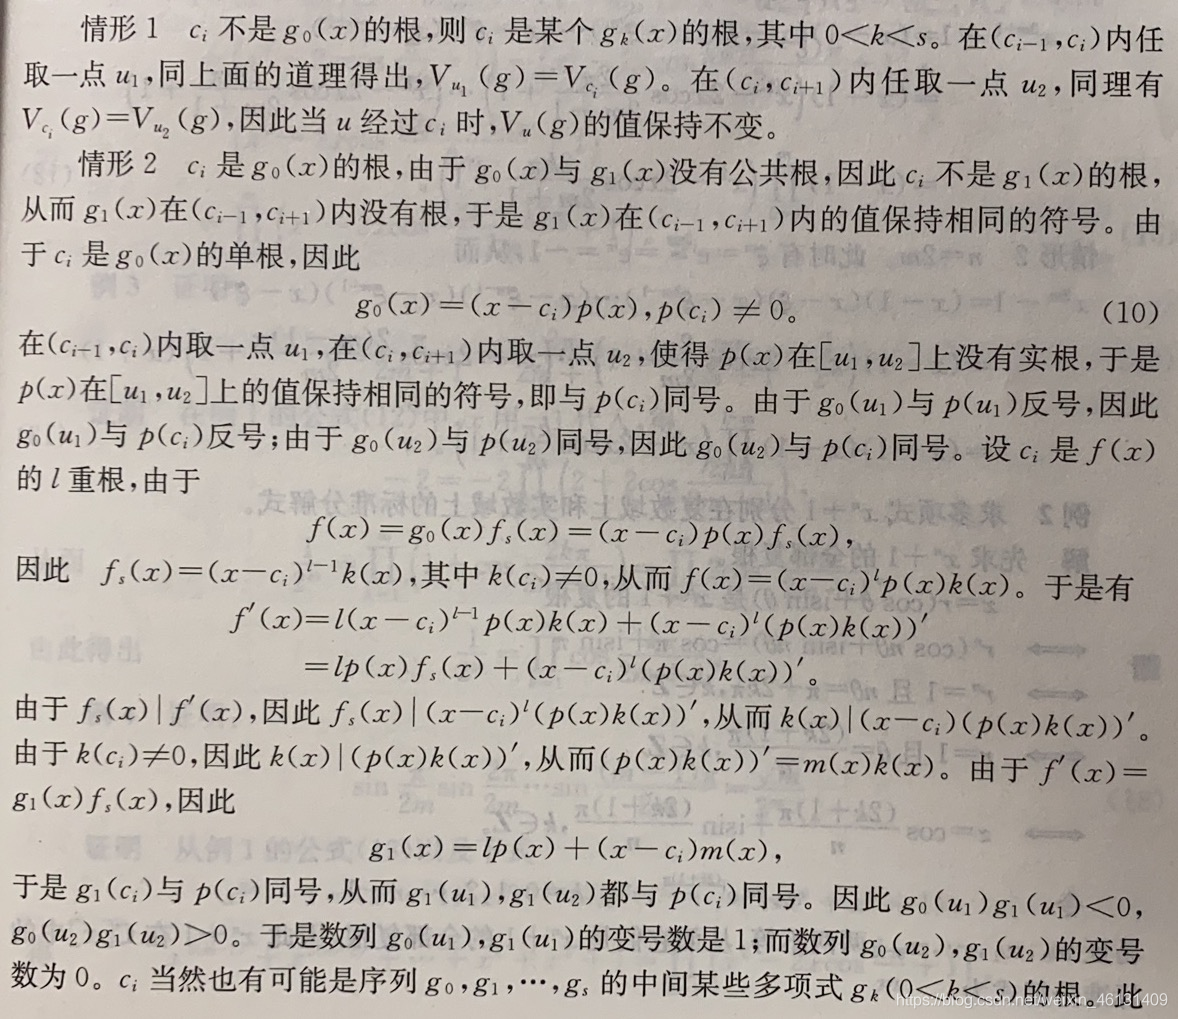 情形1 cᵢ 不是 g₀(x)的根,则 cᵢ 是某个 gₖ(x)的根,其中 0<k<s。在(cᵢ₋₁,cᵢ)内任
取一点 u₁,同上面的道理得出,V_{u₁}(g)=V_{cᵢ}(g)。在(cᵢ,cᵢ₊₁)内任取一点 u₂,同理有
V_{cᵢ}(g)=V_{u₂}(g),因此当 u 经过 cᵢ 时,Vᵤ(g)的值保持不变。
情形2 cᵢ 是 g₀(x)的根,由于 g₀(x)与 g₁(x)没有公共根,因此 cᵢ 不是 g₁(x)的根,
从而 g₁(x)在(cᵢ₋₁,cᵢ₊₁)内没有根,于是 g₁(x)在(cᵢ₋₁,cᵢ₊₁)内的值保持相同的符号。由
于 cᵢ 是 g₀(x)的单根,因此
g₀(x)=(x-cᵢ)p(x),p(cᵢ)≠0。 (10)
在(cᵢ₋₁,cᵢ)内取一点 u₁,在(cᵢ,cᵢ₊₁)内取一点 u₂,使得 p(x)在[u₁,u₂]上没有实根,于是
p(x)在[u₁,u₂]上的值保持相同的符号,即与 p(cᵢ)同号。由于 g₀(u₁)与 p(u₁)反号,因此
g₀(u₁)与 p(cᵢ)反号;由于 g₀(u₂)与 p(u₂)同号,因此 g₀(u₂)与 p(cᵢ)同号。设 cᵢ 是 f(x)
的 l 重根,由于
f(x)=g₀(x)fₛ(x)=(x-cᵢ)p(x)fₛ(x),
因此 fₛ(x)=(x-cᵢ)^{l-1}k(x),其中 k(cᵢ)≠0,从而 f(x)=(x-cᵢ)^l p(x)k(x)。于是有
f′(x)=l(x-cᵢ)^{l-1}p(x)k(x)+(x-cᵢ)^l(p(x)k(x))′
=lp(x)fₛ(x)+(x-cᵢ)^l(p(x)k(x))′。
由于 fₛ(x)|f′(x),因此 fₛ(x)|(x-cᵢ)^l(p(x)k(x))′,从而 k(x)|(x-cᵢ)(p(x)k(x))′。
由于 k(cᵢ)≠0,因此 k(x)|(p(x)k(x))′,从而(p(x)k(x))′=m(x)k(x)。由于 f′(x)=
g₁(x)fₛ(x),因此
g₁(x)=lp(x)+(x-cᵢ)m(x),
于是 g₁(cᵢ)与 p(cᵢ)同号,从而 g₁(u₁),g₁(u₂)都与 p(cᵢ)同号。因此 g₀(u₁)g₁(u₁)<0,
g₀(u₂)g₁(u₂)>0。于是数列 g₀(u₁),g₁(u₁)的变号数是 1;而数列 g₀(u₂),g₁(u₂)的变号
数为 0。cᵢ 当然也有可能是序列 g₀,g₁,…,gₛ 的中间某些多项式 gₖ(0<k<s)的根。此
https://blog.csdn.net/weixin_46131409